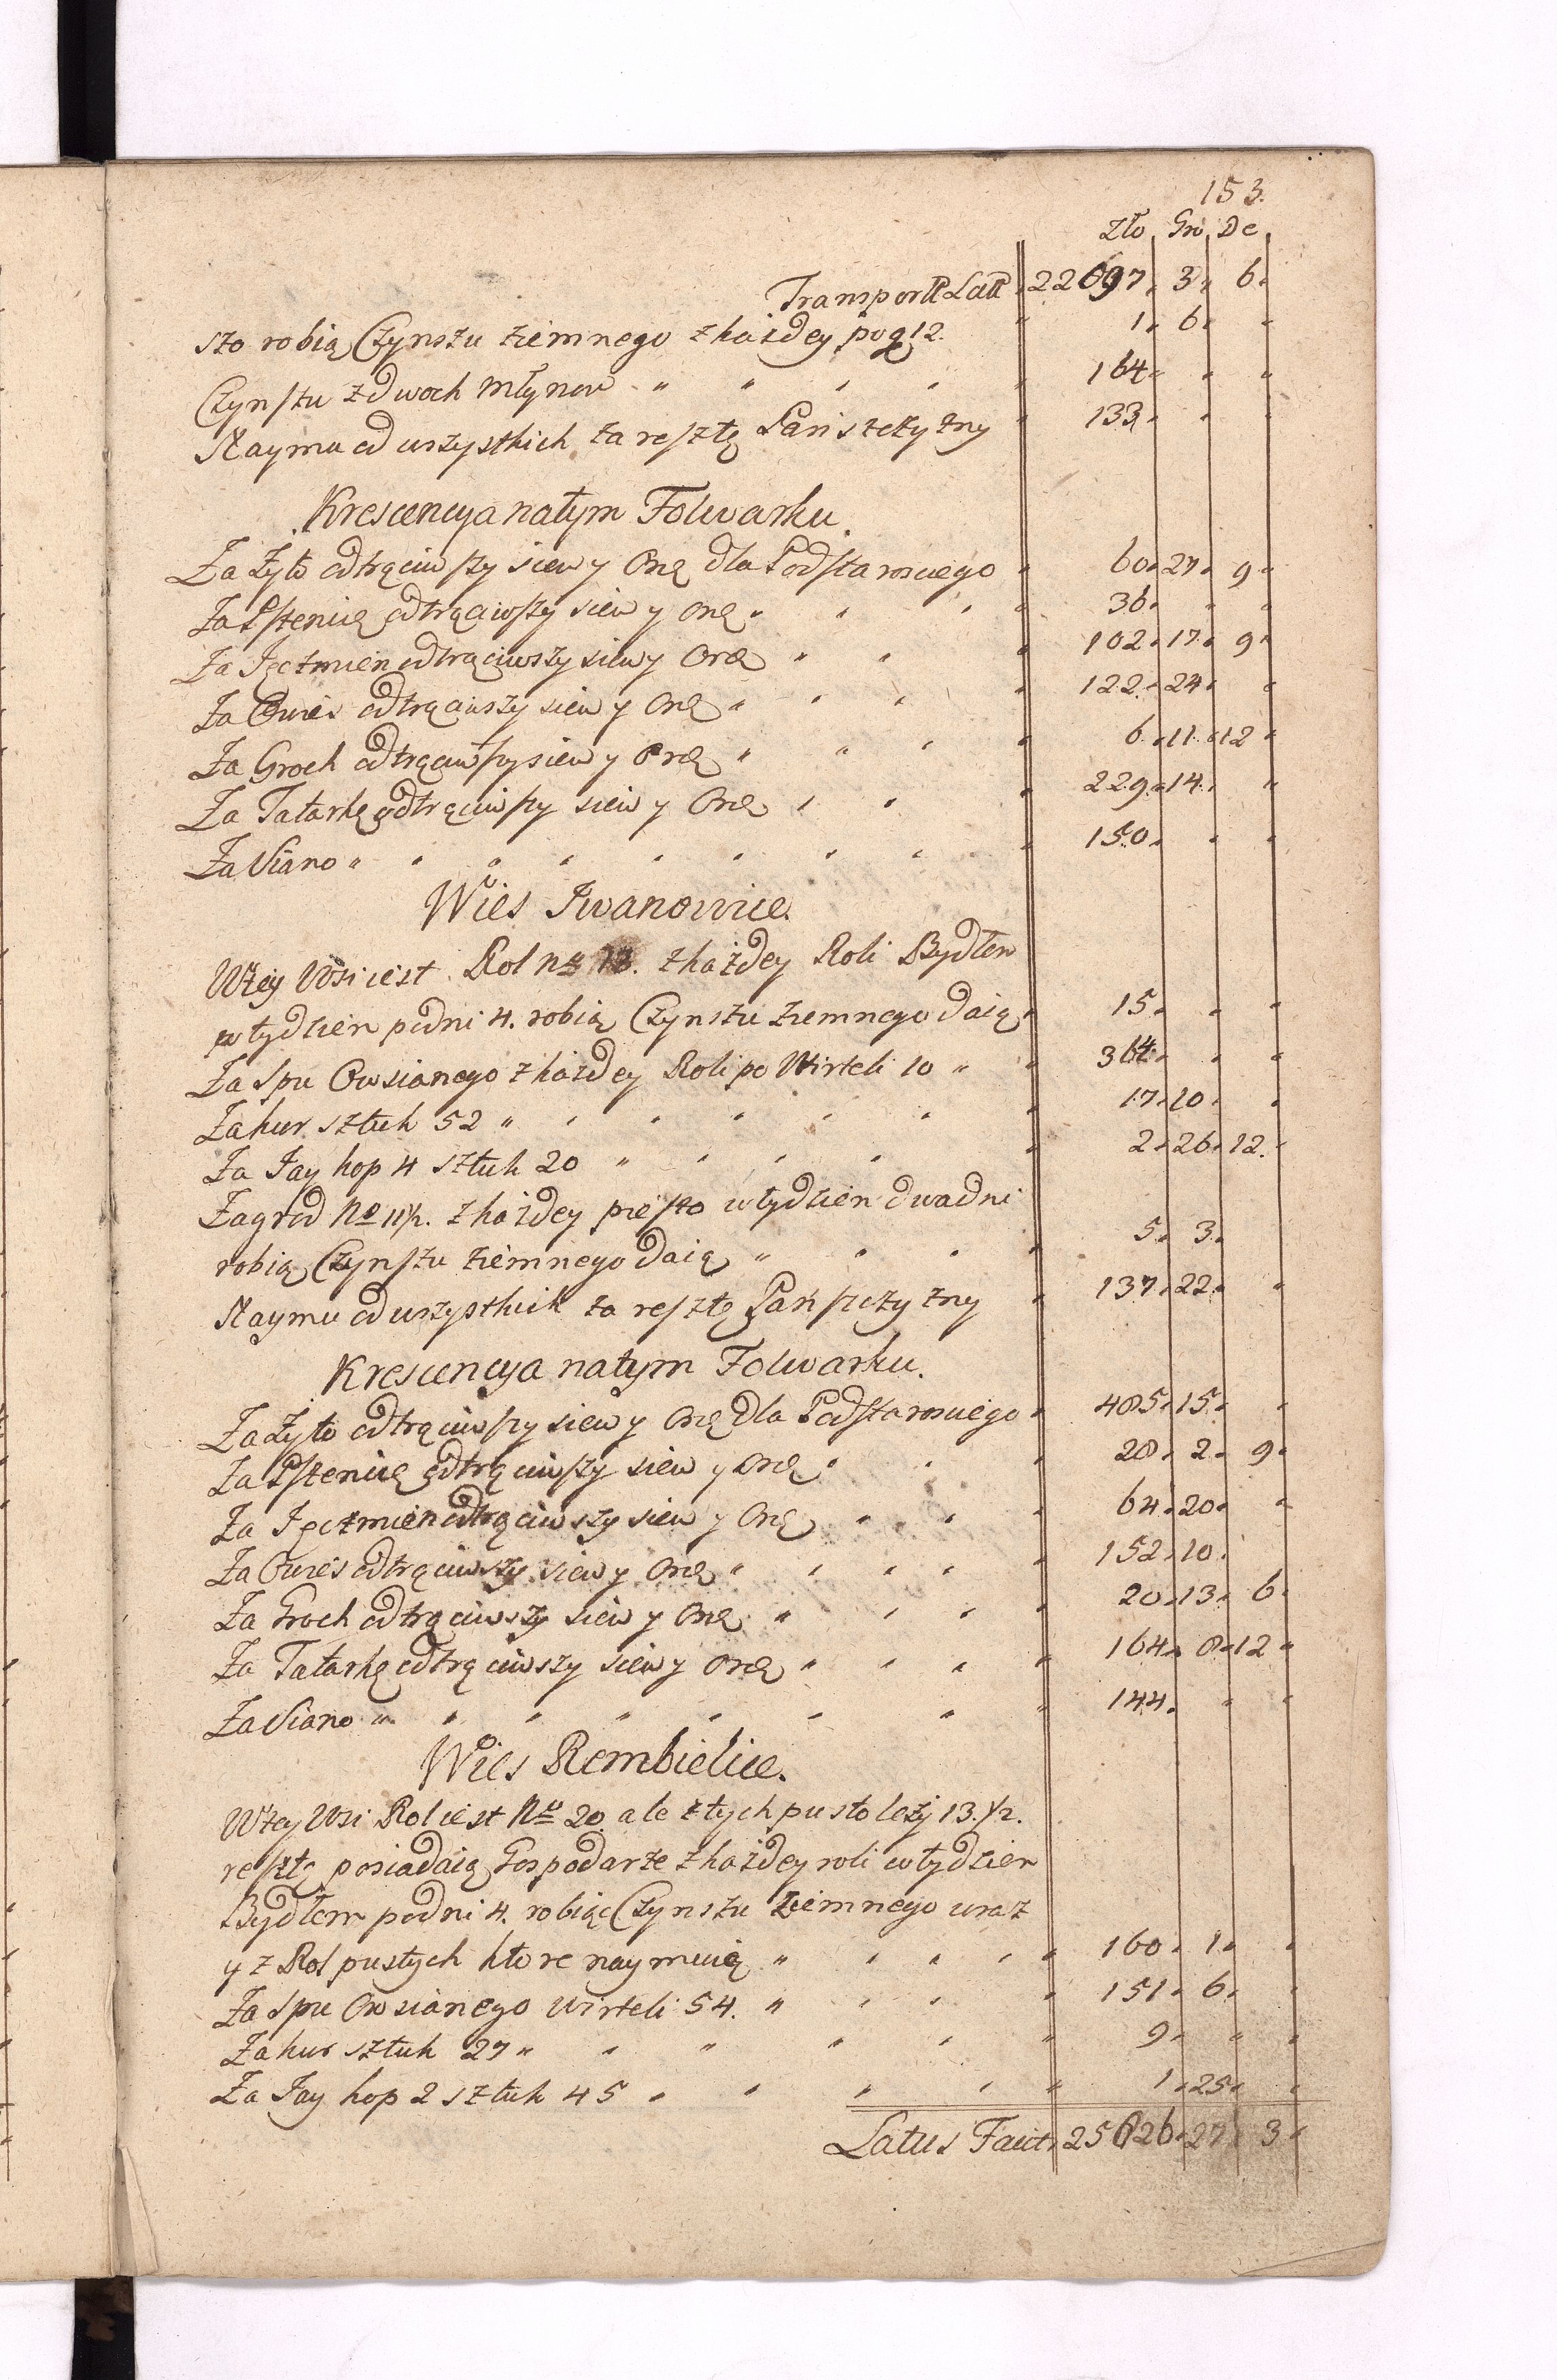 153.
Zło Gro De
Transportt Latt 22697 3 6
szo robią Czynszu ziemnego z każdey po g 12. 1 6
Czynszu z dwoch Młynow 164
Naymu od wszystkich za resztę Panszczyzny 133
Krescencya na tym Folwarku.
Za Zyto odtrąciwszy siew y Orę dla Podstarosciego 60 27 9
Za Pszenicę odtrąciwszy siew y Orę 36
Za Ięczmien odtrąciwszy siew y Orę 102 17 9
Za Owies odtrąciwszy siew y Orę 122 24
Za Groch odtrąciwszy siew y Orę 6 11 12
Za Tatarkę odtrąciwszy siew y Orę 229 14
Za Siano 150
Wies Iwanowice.
W tey Wsi iest Rol No 13. z każdey Roli Bydłem
w tydzien po dni 4. robią Czynszu ziemnego daią 15
Za Spu Owsianego z każdey Roli po Wirteli 10 364
Za kur sztuk 52 17 10
Za Jay kop 4 sztuk 20 2 26 12.
Zagrod No 11½. z każdey pieszo w tydzien dwa dni
robią Czynszu ziemnego daią 5 3
Naymu od wszystkich za resztę Panszczyzny 137 22
Krescencya na tym Folwarku.
Za Zyto odtrąciwszy siew y Orę dla Podstarosciego 485 15
Za Pszenicę odtrąciwszy siew y Orę 28 2 9
Za Ięczmien odtrąciwszy siew y Orę 64 20
Za Owies odtrąciwszy siew y Orę 152 10
Za Groch odtrąciwszy siew y Orę 20 13 6
Za Tatarkę odtrąciwszy siew y Orę 164 8 12
Za Siano 144
Wies Rembielice.
W tey Wsi Rol iest No 20 ale z tych pusto leży 13.½.
resztę posiadaią Gospodarze z każdey roli w tydzien
Bydłem po dni 4. robiąc Czynszu Ziemnego wraz
y z Rol pustych ktore naymuią 160 1
Za Spu Owsianego wirteli 54. 151 6
Za kur sztuk 27 9
Za Jay kop 2 sztuk 45 1 25
Latus Facit 25626 27 3